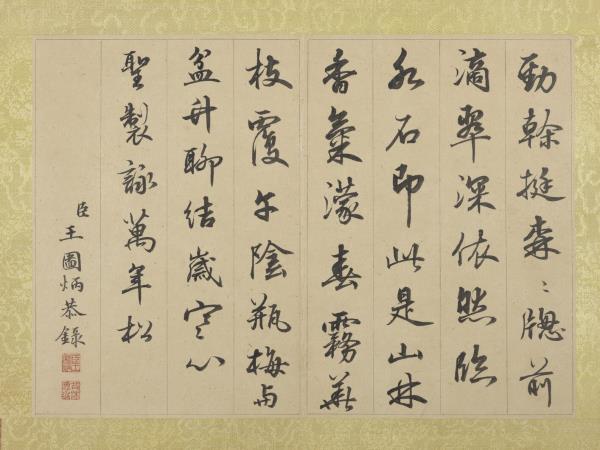 勁榦挺森〻牕前
滴翠深依然臨
水石即此是山林
香氣濛春霧華
枝覆午陰瓶梅与
盆卉聊結歲寒心
聖製詠萬年松
臣王圖炳恭錄